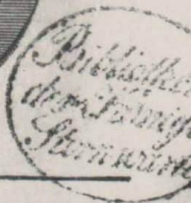 Bibliothek
der Königl
Sternwarte